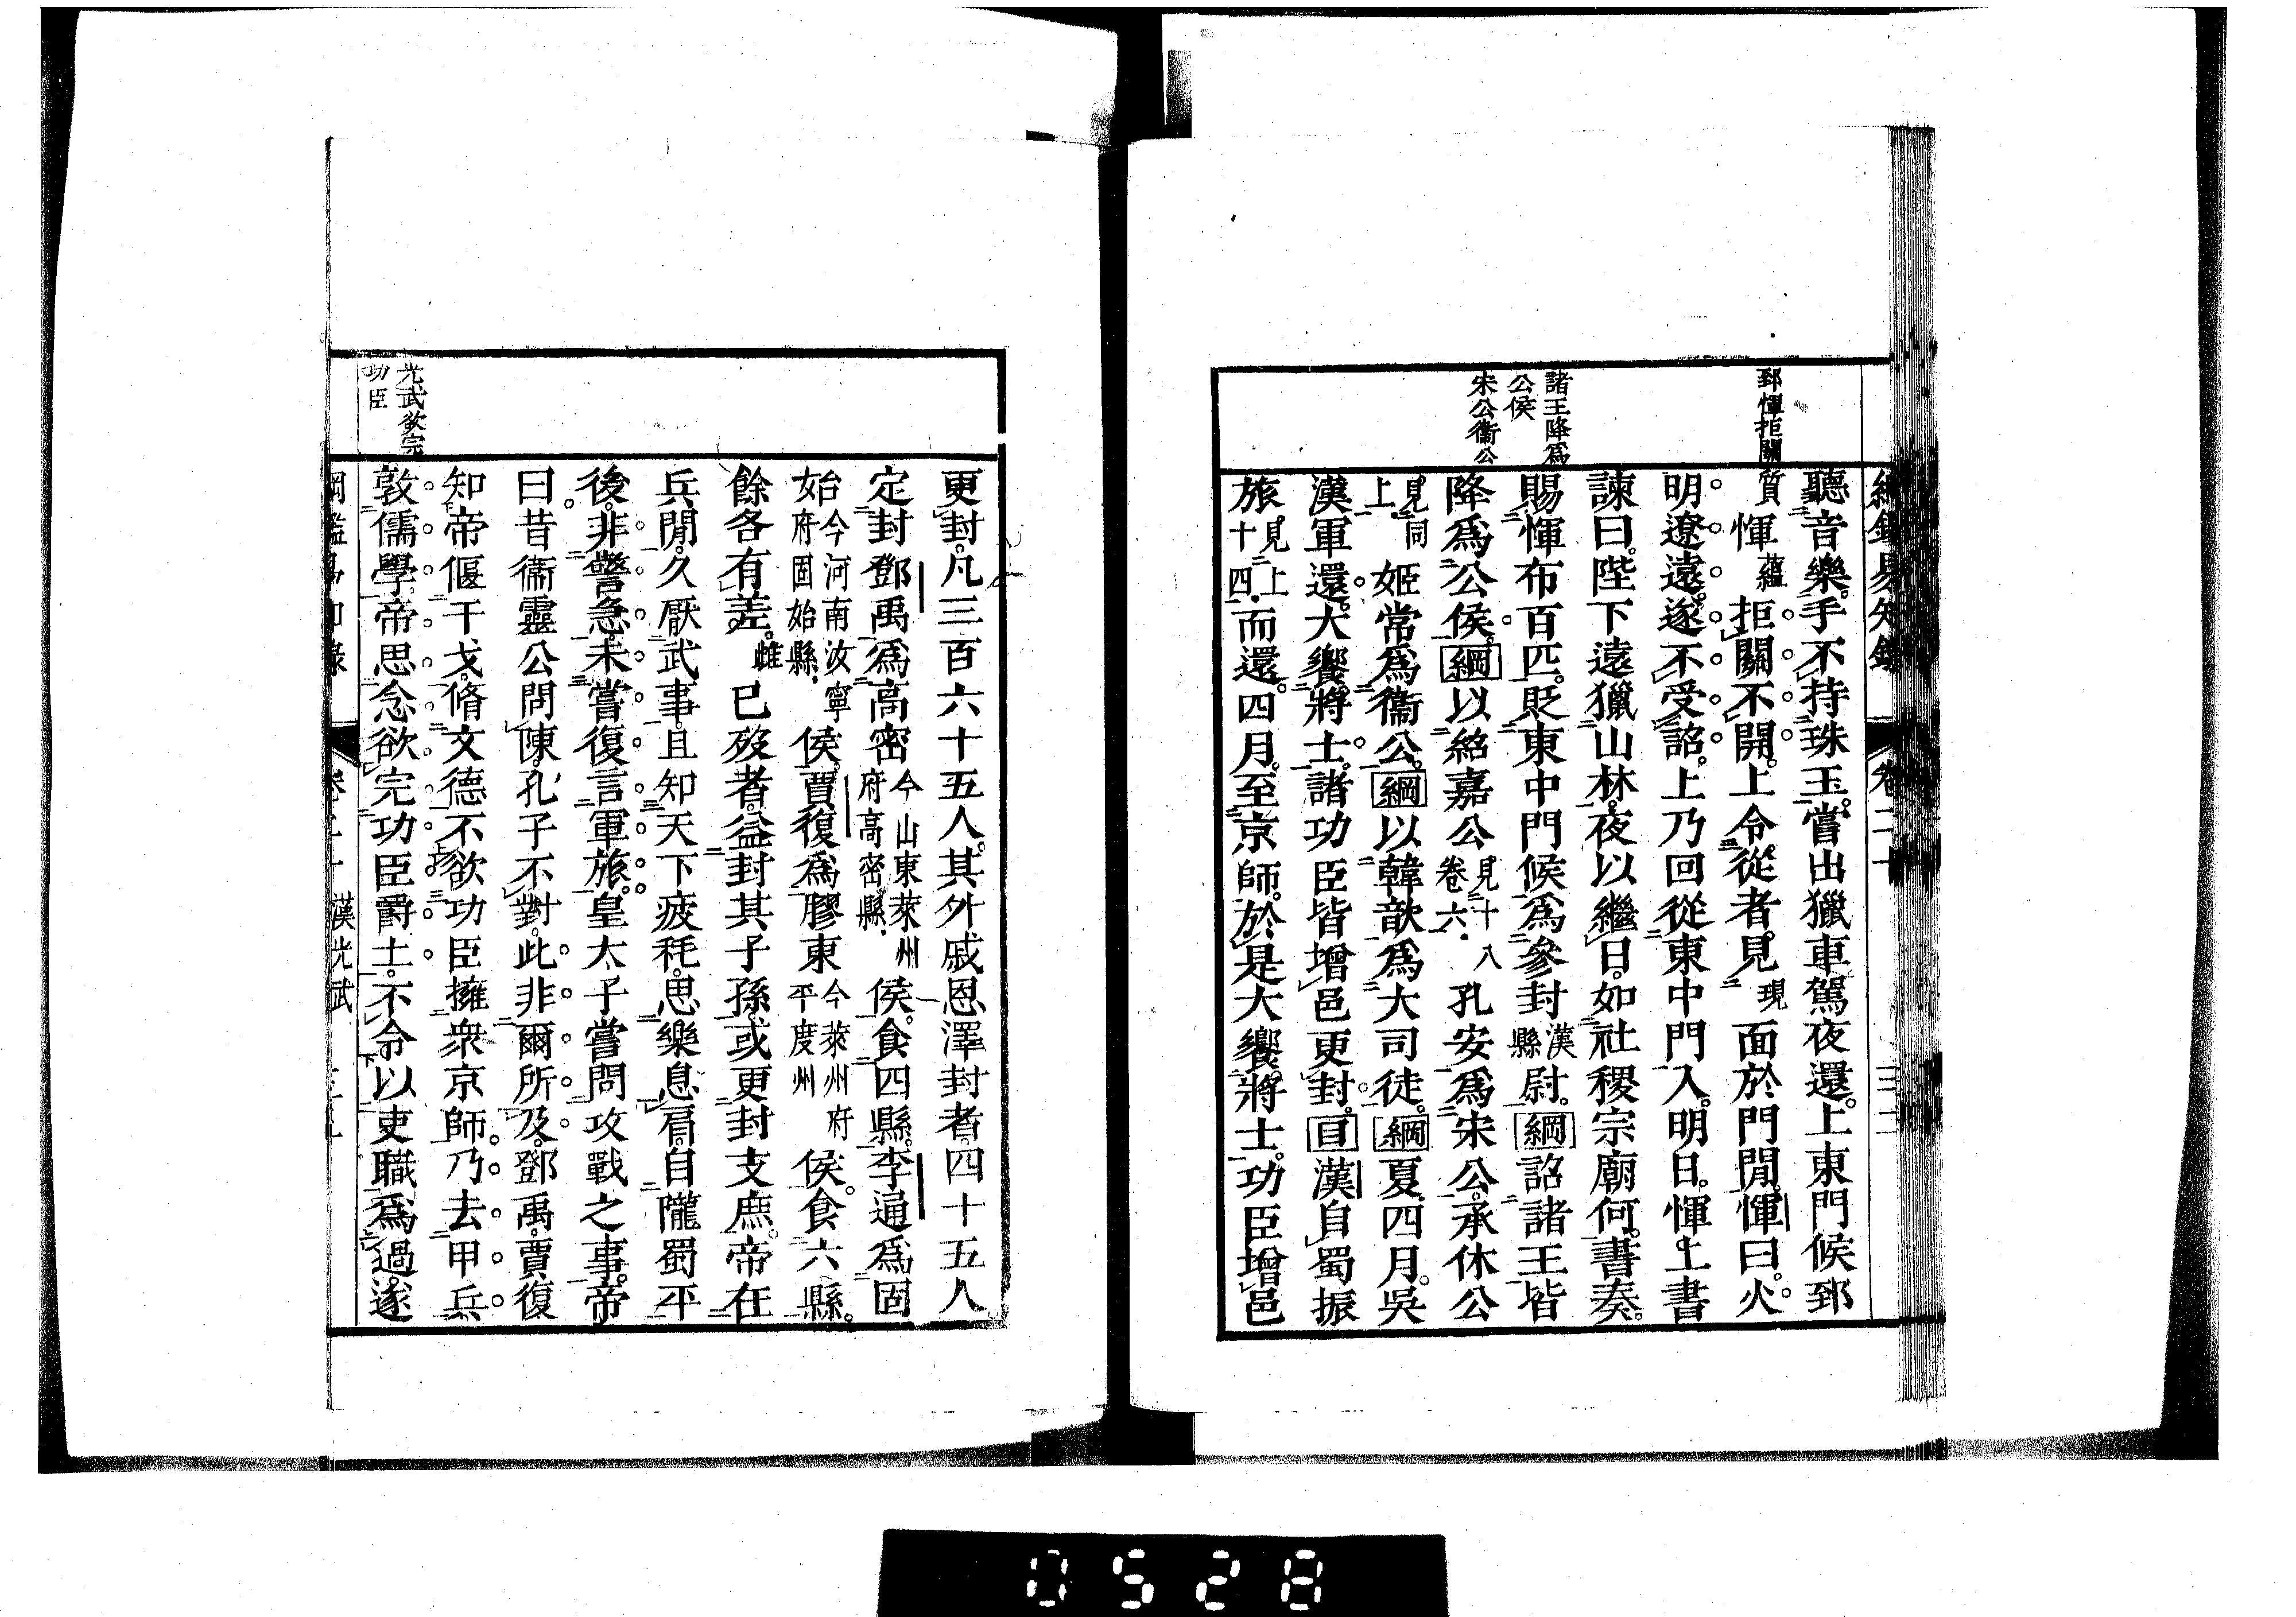 綱鑑易知錄 卷二十 三二
郅惲拒關
諸王降爲
公侯
宋公衞公
聽音樂。手不持珠玉。嘗出獵車駕夜還。上東門候郅
質惲蘊拒關不開。上令從者見現面於門閒。惲曰。火
明遼遠。遂不受詔。上乃回從東中門入。明日。惲上書
諫曰。陛下遠獵山林。夜以繼日。如社稷宗廟何。書奏。
賜惲布百匹。貶東中門候爲參封漢縣尉。綱詔諸王皆
降爲公侯。綱以紹嘉公見十八卷六孔安爲宋公。承休公
見同上姬常爲衞公。綱以韓歆爲大司徒。綱夏。四月。吳
漢軍還。大饗將士。諸功臣皆增邑更封。目漢自蜀振
旅。見上十四而還。四月。至京師。於是大饗將士。功臣增邑
更封。凡三百六十五人。其外戚恩澤封者。四十五人。
定封鄧禹爲高密今山東萊州府高密縣侯。食四縣。李通爲固
始今河南汝寧府固始縣侯。賈復爲膠東今萊州府平度州侯。食六縣。
餘各有差。雌已歿者。益封其子孫。或更封支庶。帝在
兵閒。久厭武事。且知天下疲秏。思樂息肩。自隴蜀平
後。非警急。未嘗復言軍旅。皇太子嘗問攻戰之事。帝
曰。昔衞靈公問陳。孔子不對。此非爾所及。鄧禹。賈復
知帝偃干戈。脩文德。不欲功臣擁衆京師。乃去甲兵
敦儒學。帝思念欲完功臣爵土。不令以吏職爲過。遂
光武欲完
功臣
綱鑑易知錄 卷二十 漢光武
0528